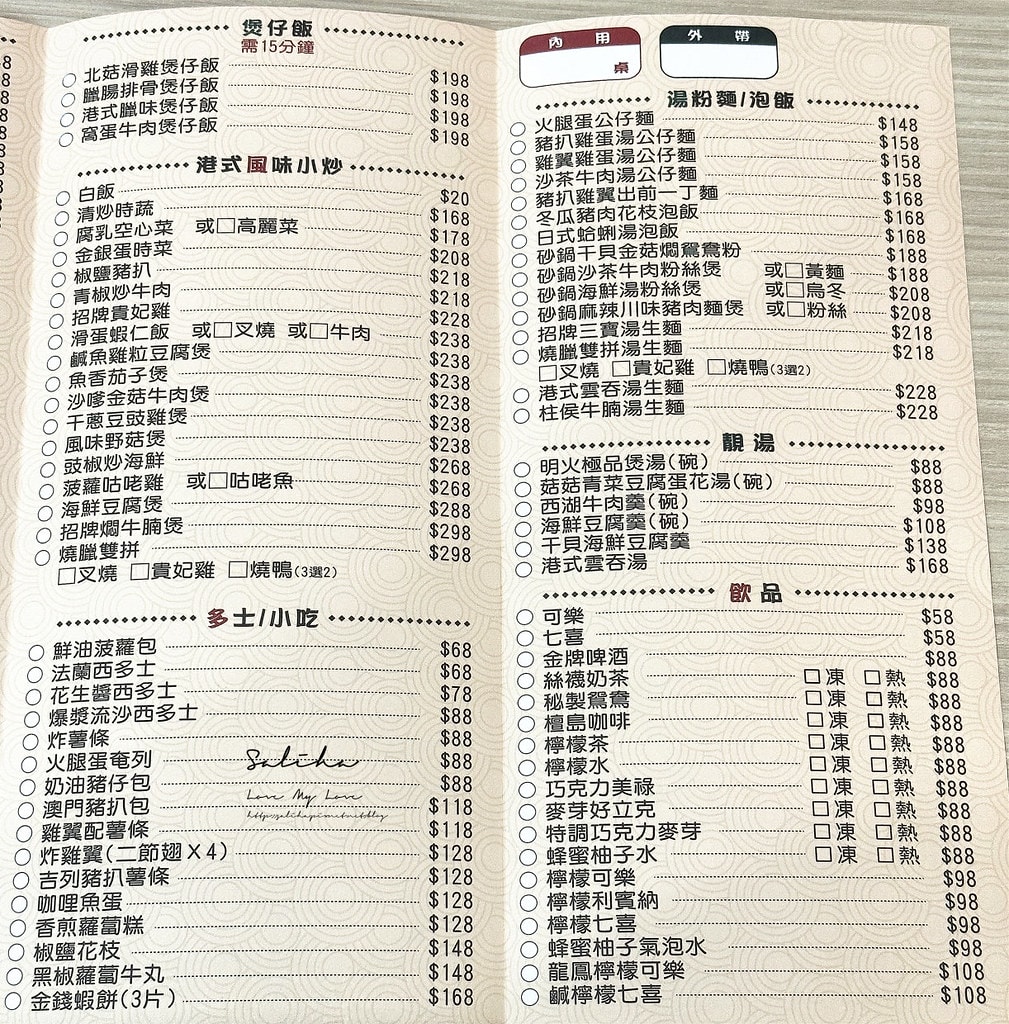 煲仔飯
需15分鐘
北菇滑雞煲仔飯 $198
臘腸排骨煲仔飯 $198
港式臘味煲仔飯 $198
窩蛋牛肉煲仔飯 $198
港式風味小炒
白飯 $20
清炒時蔬 $168
腐乳空心菜 或□高麗菜 $178
金銀蛋時菜 $208
椒鹽豬扒 $218
青椒炒牛肉 $218
招牌貴妃雞 $228
滑蛋蝦仁飯 或□叉燒 或□牛肉 $238
鹹魚雞粒豆腐煲 $238
魚香茄子煲 $238
沙嗲金菇牛肉煲 $238
干蔥豆豉雞煲 $238
風味野菇煲 $238
豉椒炒海鮮 $268
菠蘿咕咾雞 或□咕咾魚 $268
海鮮豆腐煲 $288
招牌燜牛腩煲 $298
燒臘雙拼 $298
□叉燒 □貴妃雞 □燒鴨(3選2)
多士/小吃
鮮油菠蘿包 $68
法蘭西多士 $68
花生醬西多士 $78
爆漿流沙西多士 $88
炸薯條 $88
火腿蛋奄列 $88
奶油豬仔包 $88
澳門豬扒包 $118
雞翼配薯條 $118
炸雞翼(二節翅X4) $128
吉列豬扒薯條 $128
咖哩魚蛋 $128
香煎蘿蔔糕 $128
椒鹽花枝 $148
黑椒蘿蔔牛丸 $148
金錢蝦餅(3片) $168
Saliha
Love My Love
內用
桌
外帶
湯粉麵/泡飯
火腿蛋公仔麵 $148
豬扒雞蛋湯公仔麵 $158
雞翼雞蛋湯公仔麵 $158
沙茶牛肉湯公仔麵 $158
豬扒雞翼出前一丁麵 $168
冬瓜豬肉花枝泡飯 $168
日式蛤蜊湯泡飯 $168
砂鍋干貝金菇燜鴛鴦粉 $188
砂鍋沙茶牛肉粉絲煲 或□黃麵 $188
砂鍋海鮮湯粉絲煲 或□烏冬 $208
砂鍋麻辣川味豬肉麵煲 或□粉絲 $208
招牌三寶湯生麵 $218
燒臘雙拼湯生麵 $218
□叉燒 □貴妃雞 □燒鴨(3選2)
港式雲吞湯生麵 $228
柱侯牛腩湯生麵 $228
靚湯
明火極品煲湯(碗) $88
菇菇青菜豆腐蛋花湯(碗) $88
西湖牛肉羹(碗) $98
海鮮豆腐羹(碗) $108
干貝海鮮豆腐羹 $138
港式雲吞湯 $168
飲品
可樂 $58
七喜 $58
金牌啤酒 $88
絲襪奶茶 □凍 □熱 $88
秘製鴛鴦 □凍 □熱 $88
檀島咖啡 □凍 □熱 $88
檸檬茶 □凍 □熱 $88
檸檬水 □凍 □熱 $88
巧克力美祿 □凍 □熱 $88
麥芽好立克 □凍 □熱 $88
特調巧克力麥芽 □凍 □熱 $88
蜂蜜柚子水 □凍 □熱 $88
檸檬可樂 $98
檸檬利賓納 $98
檸檬七喜 $98
蜂蜜柚子氣泡水 $98
龍鳳檸檬可樂 $108
鹹檸檬七喜 $108